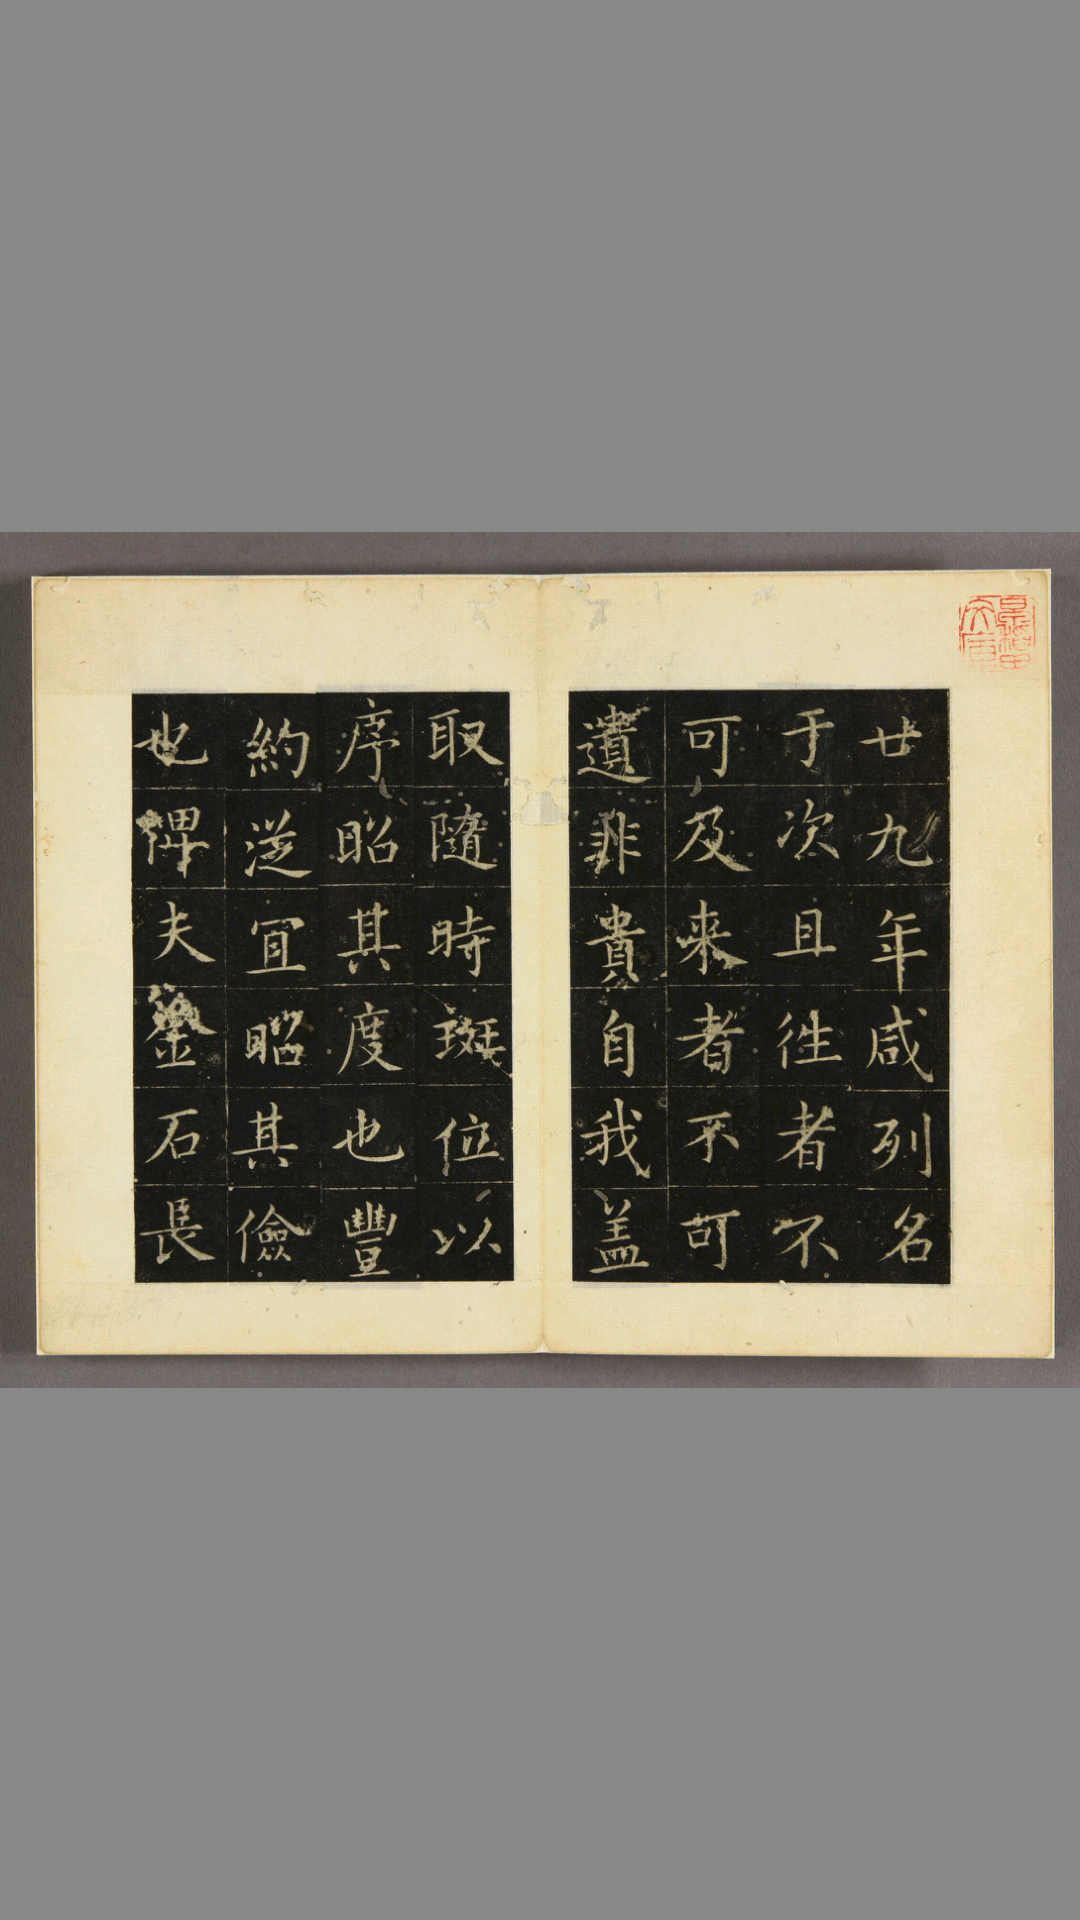 廿九年咸列名
于次且徃者不
可及来者不可
遺非貴自我盖
取隨時班位以
序昭其度也豐
約従宜昭其儉
也俾夫石長